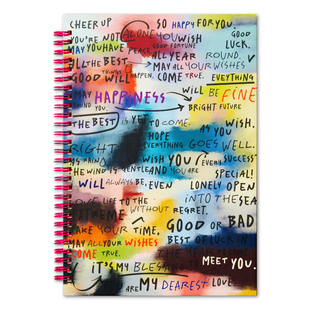 CHEER UP SO HAPPY FOR YOU.
YOU'RE NOT ALONE YOU WISH GOOD LUCK.
MAY YOU HAVE PEACE GOOD FORTUNE
ALL THE BEST ALL YEAR ROUND.
GOOD THINGS WILL HAPPEN. MAY ALL YOUR WISHES COME TRUE. EVEYTHING
MAY HAPPINESS WILL BE FINE
AROUND YOU. BRIGHT FUTURE
THE BEST IS YET TO COME. AS YOU WISH.
RIGHT HOPE EVERYTHING GOES WELL.
WISH YOU EVERY SUCCESS
THE WIND IS GENTLE AND YOU ARE SPECIAL!
WILL ALWAYS BE, EVEN LONELY OPEN
LOVE LIFE TO THE INTO THE SEA
EXTREME WITHOUT REGRET.
TAKE YOUR TIME, GOOD OR BAD
MAY ALL YOUR WISHES BEST OF LUCK IN
COME TRUE. THE
MEET YOU.
IT'S MY BLESSING
ARE MY DEAREST LOVE